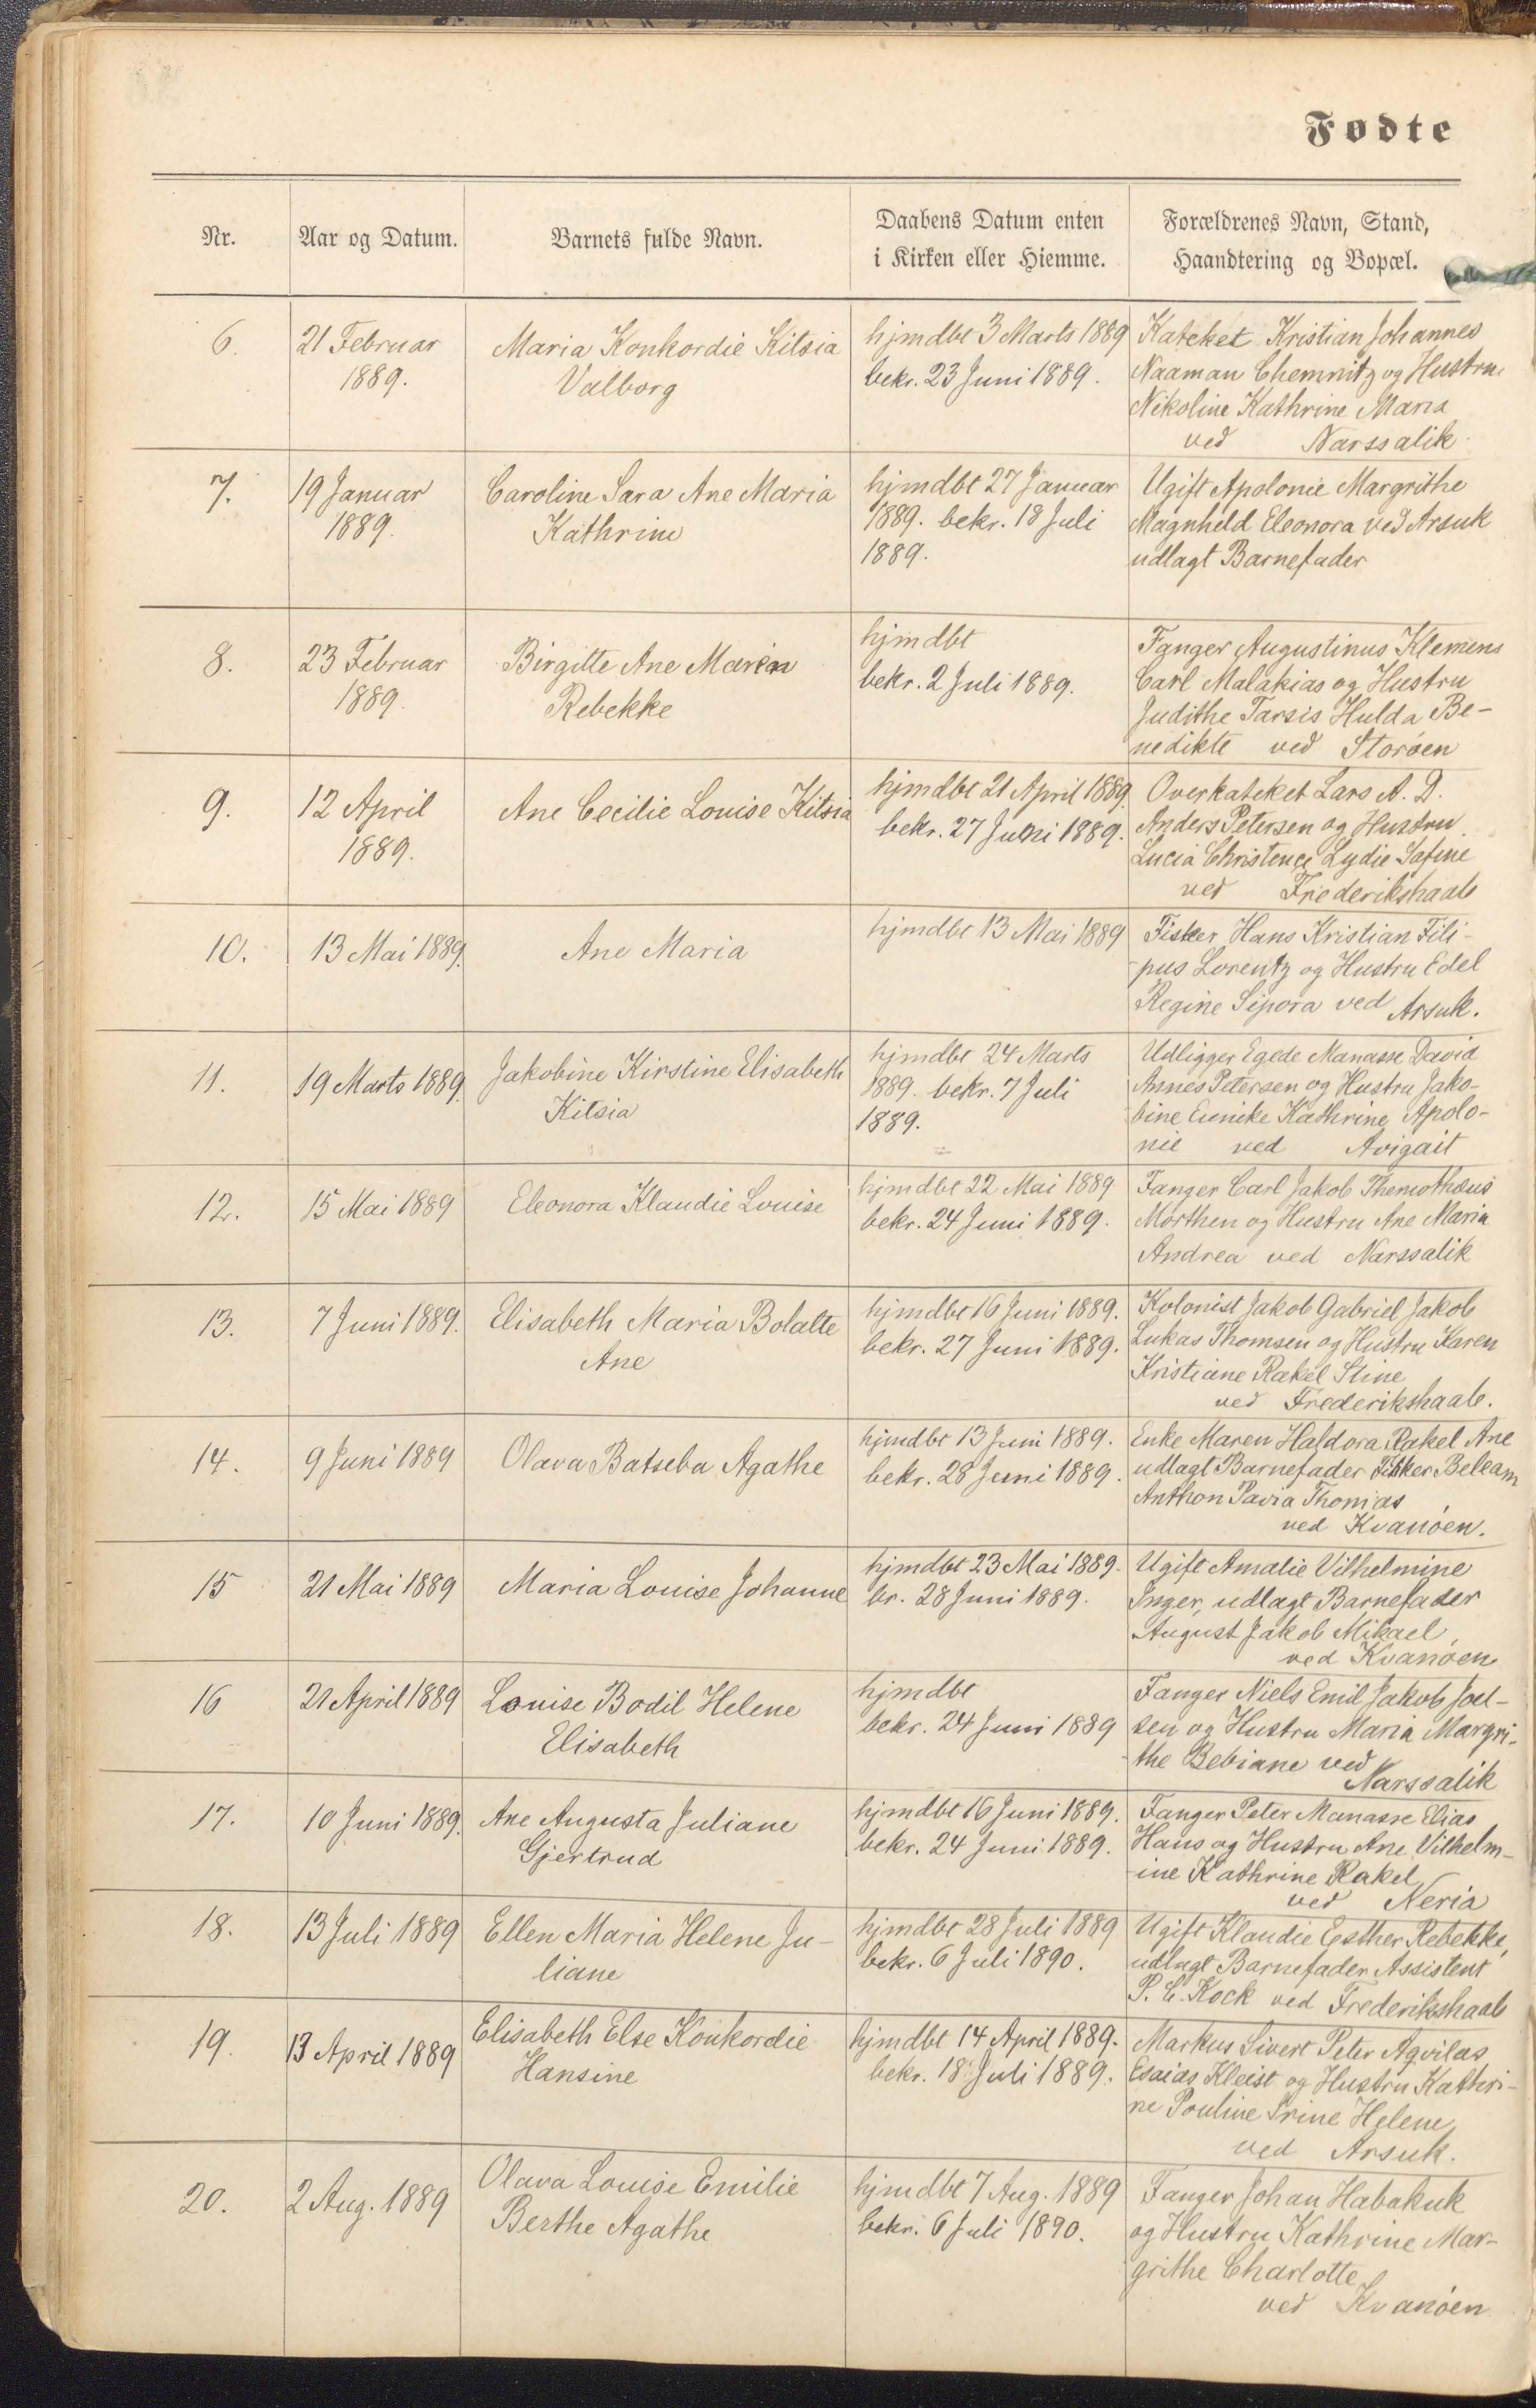 Fødte
Nr.
Aar og Datum.
Barnets fulde Navn.
Daabens Datum enten
i Kirken eller Hiemme.
Forældrenes Navn, Stand,
Haandtering og Bopæl.
6.
21 Februar
1889.
Maria Konkordie Kitsia
Valborg
hjmdbt 3 Marts 1889
bekr. 23 Juni 1889.
Kateket Kristian Johannes
Naaman Chemnitz og Hustru
Nikoline Kathrine Maria
ved Narssalik
7.
19 Januar
1889.
Caroline Sara Ane Maria
Kathrine
hjmdbt 27 Januar
1889. bekr. 18 Juli
1889.
Ugift Apolonie Margrithe
Magnheld Eleonora ved Arsuk
udlagt Barnefader
8.
23 Februar
1889.
Birgitte Ane Maren
Rebekke
hjmdbt
bekr. 2 Juli 1889.
Fanger Augustinus Klemens
Carl Malakias og Hustru
Judithe Tarsis Hulda Be-
nedikte ved Storøen
9.
12 April
1889.
Ane Cecilie Louise Kitsia
hjmdbt 21 April 1889.
bekr. 27 Juni 1889.
Overkateket Lars A. D.
Anders Petersen og Hustru
Lucia Christence Lydie Safine
ved Frederikshaab
10.
13 Mai 1889.
Ane Maria
hjmdbt 13 Mai 1889
Fisker Hans Kristian Fili-
pus Lorentz og Hustru Edel
Regine Sipora ved Arsuk.
11.
19 Marts 1889.
Jakobine Kirstine Elisabeth
Kitsia
hjmdbt 24 Marts
1889. bekr. 7 Juli
1889.
Udligger Egede Manasse David
Annes Petersen og Hustru Jako-
bine Eunike Kathrine Apolo-
nie ved Avigait
12.
15 Mai 1889
Eleonora Klaudie Louise
hjmdbt 22 Mai 1889
bekr. 24 Juni 1889.
Fanger Carl Jakob Themothæus
Morthen og Hustru Ane Maria
Andrea ved Narssalik
13.
7 Juni 1889.
Elisabeth Maria Bolalte
Ane
hjmdbt 16 Juni 1889.
bekr. 27 Juni 1889.
Kolonist Jakob Gabriel Jakob
Lukas Thomsen og Hustru Karen
Kristiane Rakel Stine
ved Frederikshaab.
14.
9 Juni 1889
Olava Batseba Agathe
hjmdbt 13 Juni 1889.
bekr. 28 Juni 1889.
Enke Maren Haldora Rakel Ane
udlagt Barnefader Fisker Beleam
Anthon Pavia Thomas
ved Kvanøen.
15
21 Mai 1889
Maria Louise Johanne
hjmdbt 23 Mai 1889.
br. 28 Juni 1889.
Ugift Amalie Vilhelmine
Inger, udlagt Barnefader
August Jakob Mikael,
ved Kvanøen
16
21 April 1889
Louise Bodil Helene
Elisabeth
hjmdbt
bekr. 24 Juni 1889
Fanger Niels Emil Jakob Joel-
sen og Hustru Maria Margri-
the Bebiane ved
Narssalik
17.
10 Juni 1889.
Ane Augusta Juliane
Gjertrud
hjmdbt 16 Juni 1889.
bekr. 24 Juni 1889.
Fanger Peter Manasse Elias
Hans og Hustru Ane Vilhelm-
ine Kathrine Rakel
ved Neria
18.
13 Juli 1889
Ellen Maria Helene Ju-
liane
hjmdbt 28 Juli 1889
bekr. 6 Juli 1890.
Ugift Klaudie Esther Rebekke,
udlagt Barnefader Assistent
P. C. Kock ved Frederikshaab
19.
13 April 1889
Elisabeth Else Konkordie
Hansine
hjmdbt 14 April 1889.
bekr. 18 Juli 1889.
Markus Sivert Peter Aqvilas
Esaias Kleist og Hustru Kathri-
ne Pouline Trine Helene
ved Arsuk.
20.
2 Aug. 1889
Olava Louise Emilie
Berthe Agathe
hjmdbt 7 Aug. 1889
bekr. 6 Juli 1890.
Fanger Johan Habakuk
og Hustru Kathrine Mar-
grithe Charlotte
ved Kvanøen